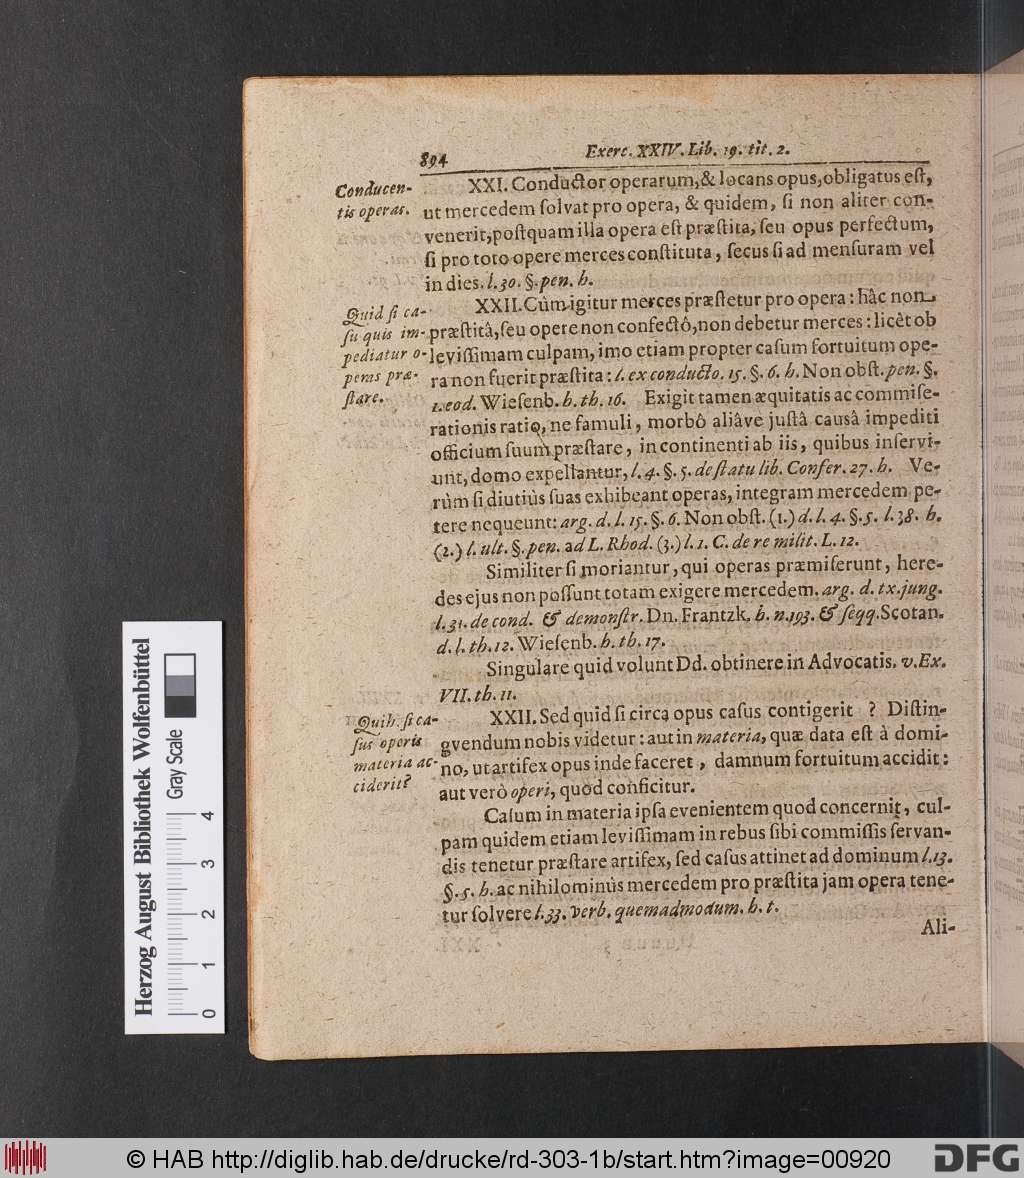 894 Exerc. XXIV. Lib. 19. tit. 2.
Conducen-
tis operas.
XXI. Conductor operarum, & locans opus, obligatus eſt,
ut mercedem ſolvat pro opera, & quidem, ſi non aliter con-
venerit, poſtquam illa opera eſt præſtita, ſeu opus perfectum,
ſi pro toto opere merces conſtituta, ſecus ſi ad menſuram vel
in dies. l. 30. §. pen. h.
Quid ſi ca-
ſu quis im-
pediatur o-
peras præ-
ſtare.
XXII. Cùm igitur merces præſtetur pro opera: hâc non
præſtitâ, ſeu opere non confectô, non debetur merces: licèt ob
leviſſimam culpam, imo etiam propter caſum fortuitum ope-
ra non fuerit præſtita: l. ex conducto. 15. §. 6. h. Non obſt. pen. §.
1. eod. Wieſenb. h. th. 16. Exigit tamen æquitatis ac commiſe-
rationis ratio, ne famuli, morbô aliâve juſtâ causâ impediti
officium ſuum præſtare, in continenti ab iis, quibus inſervi-
unt, domo expellantur, l. 4. §. 5. de ſtatu lib. Confer. 27. h. Ve-
rùm ſi diutiùs ſuas exhibeant operas, integram mercedem pe-
tere nequeunt: arg. d. l. 15. §. 6. Non obſt. (1.) d. l. 4. §. 5. l. 38. h.
(2.) l. ult. §. pen. ad L. Rhod. (3.) l. 1. C. de re milit. L. 12.
Similiter ſi moriantur, qui operas præmiſerunt, here-
des ejus non poſſunt totam exigere mercedem. arg. d. tx. jung.
l. 31. de cond. & demonſtr. Dn. Frantzk. h. n. 193. & ſeqq. Scotan.
d. l. th. 12. Wieſenb. h. th. 17.
Singulare quid volunt Dd. obtinere in Advocatis. v. Ex.
VII. th. 11.
Quib. ſi ca-
ſus operis
materia ac-
ciderit?
XXII. Sed quid ſi circa opus caſus contigerit ? Diſtin-
gvendum nobis videtur: aut in materia, quæ data eſt à domi-
no, ut artifex opus inde faceret, damnum fortuitum accidit:
aut verò operi, quod conficitur.
Caſum in materia ipſa evenientem quod concernit, cul-
pam quidem etiam leviſſimam in rebus ſibi commiſſis ſervan-
dis tenetur præſtare artifex, ſed caſus attinet ad dominum l. 13.
§. 5. h. ac nihilominùs mercedem pro præſtita jam opera tene-
tur ſolvere l. 33. verb. quemadmodum. h. t.
Ali-
Herzog August Bibliothek Wolfenbüttel
Gray Scale
0 1 2 3 4
© HAB http://diglib.hab.de/drucke/rd-303-1b/start.htm?image=00920
DFG